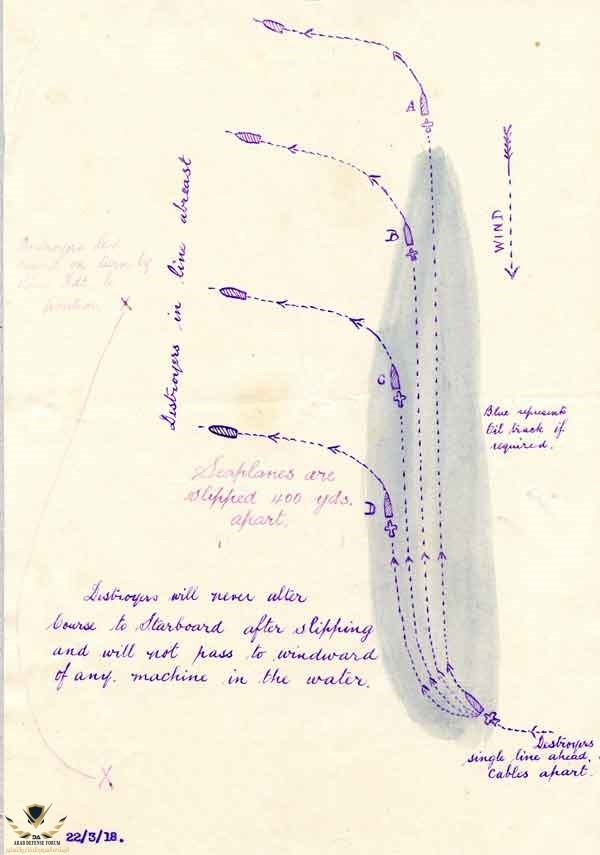 A
WIND
B
Destroyers in line abreast
C
Blue represents
Oil track if
required.
D
Seaplanes are
slipped 400 yds.
apart.
Destroyers will never alter
Course to Starboard after slipping
and will not pass to windward
of any machine in the water.
Destroyers
single line ahead,
Cables apart.
X
X
22/3/18.
DA
ARAB DEFENSE FORUM